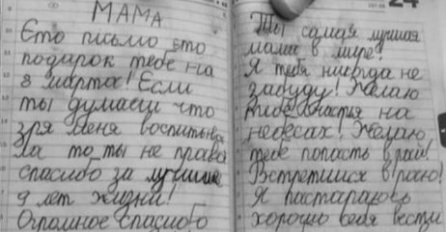 МАМА
Ето письмо это
подарок тебе на
8 марта! Если
ты думаеш что
зря меня воспитыва
ла то ты не права
спасибо за лучшие
9 лет жизни!
Огромное спасибо
24
Ты самая лучшая
мама в мире!
Я тебя никогда не
забуду! Желаю
тебе счастья на
небесах! Желаю
тебе попасть в рай!
Встретимся в раю!
Я постараюсь
хорошо себя вести